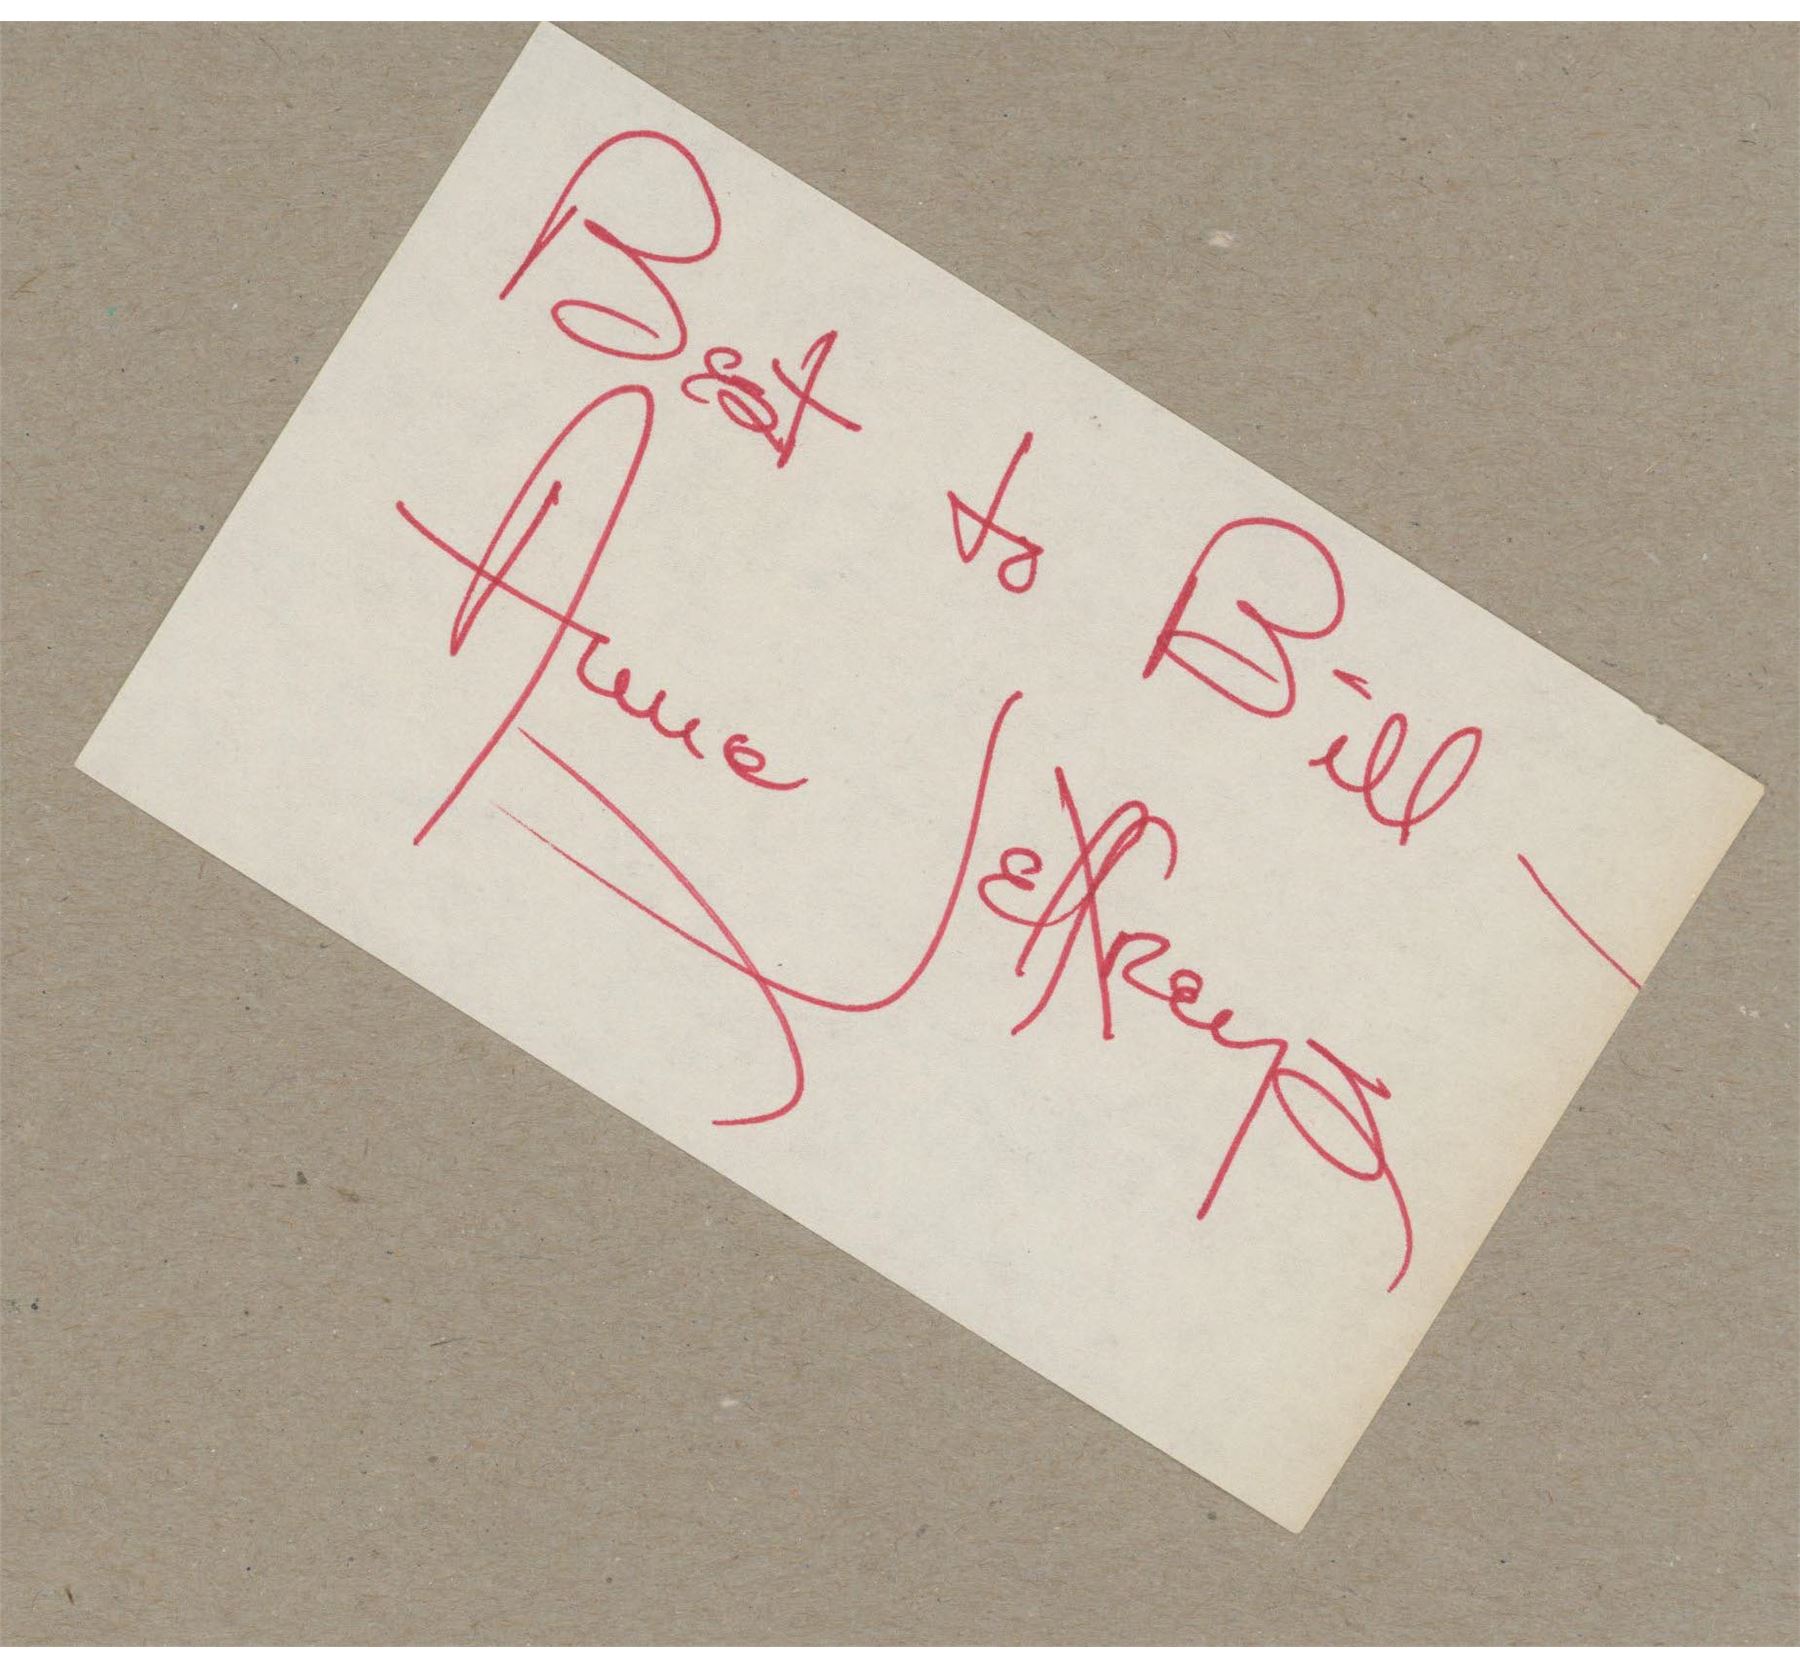 Best to Bill –
Anne Jeffreys